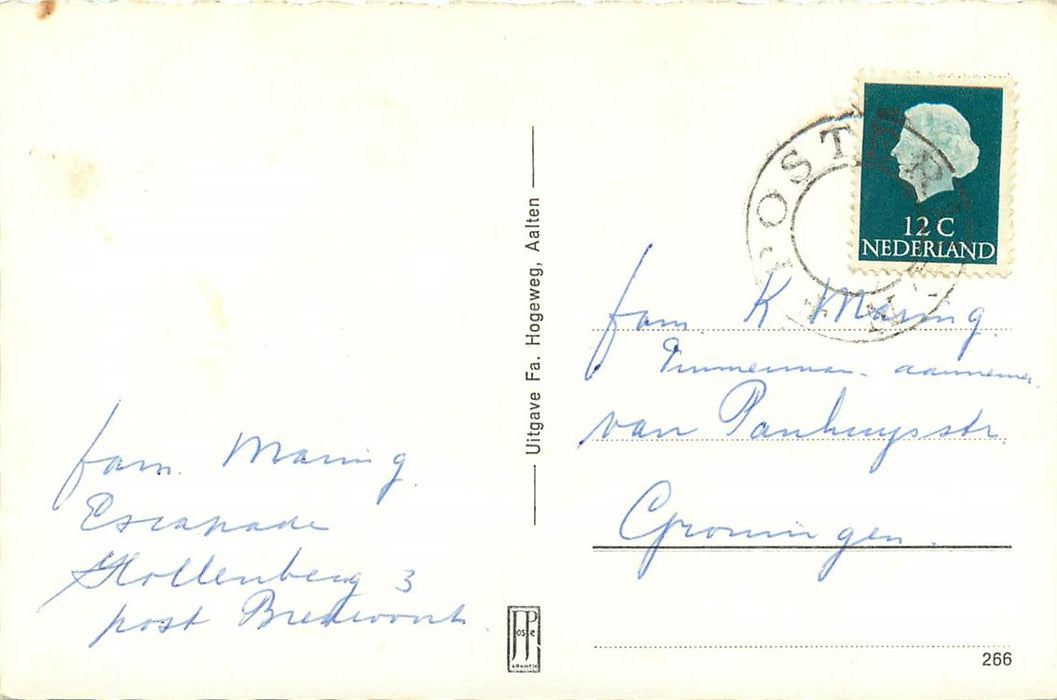 fam. Maring
Escapade
Hollenberg 3
post Bredevoort
Uitgave Fa. Hogeweg, Aalten
POSTER
12 C
NEDERLAND
fam. K. Maring.
Timmerman-aannemer.
van Panhuysstr.
Groningen.
JosPé
ARNHEM
266